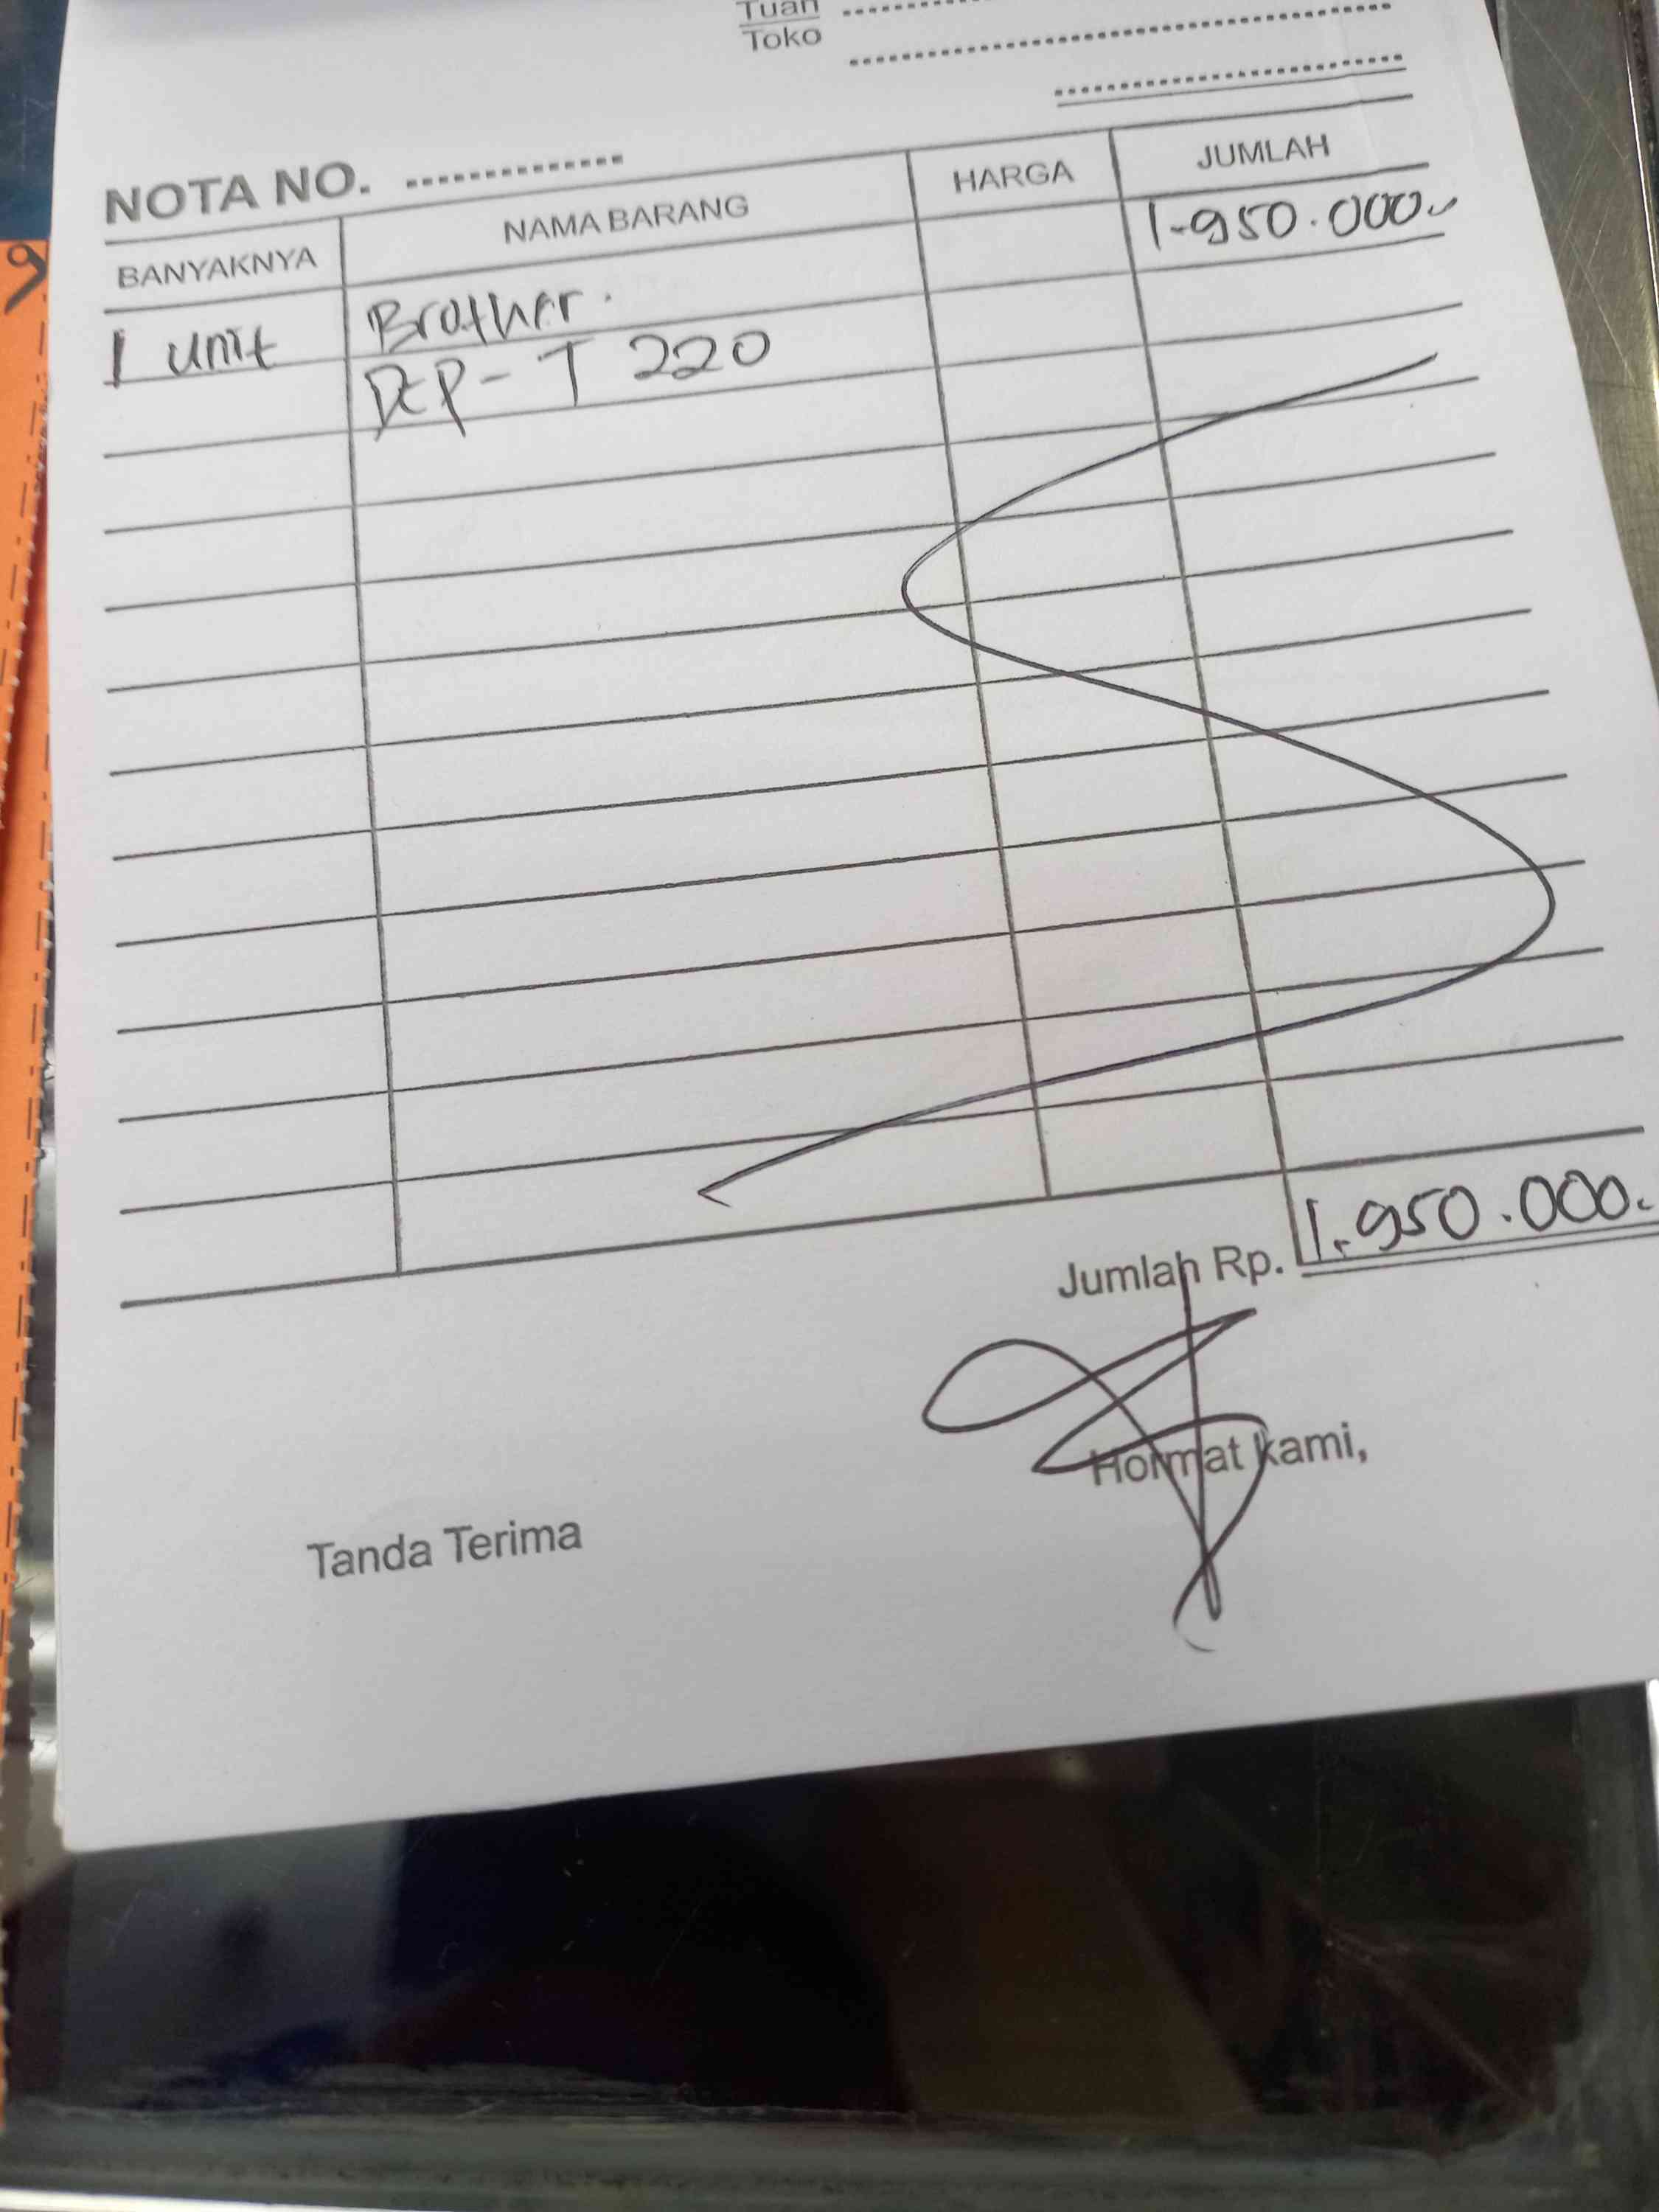 Tuan
Toko
NOTA NO.
BANYAKNYA NAMA BARANG HARGA JUMLAH
1 unit Brother. 1.950.000.-
DCP-T 220
Jumlah Rp. 1.950.000.-
Tanda Terima Hormat kami,